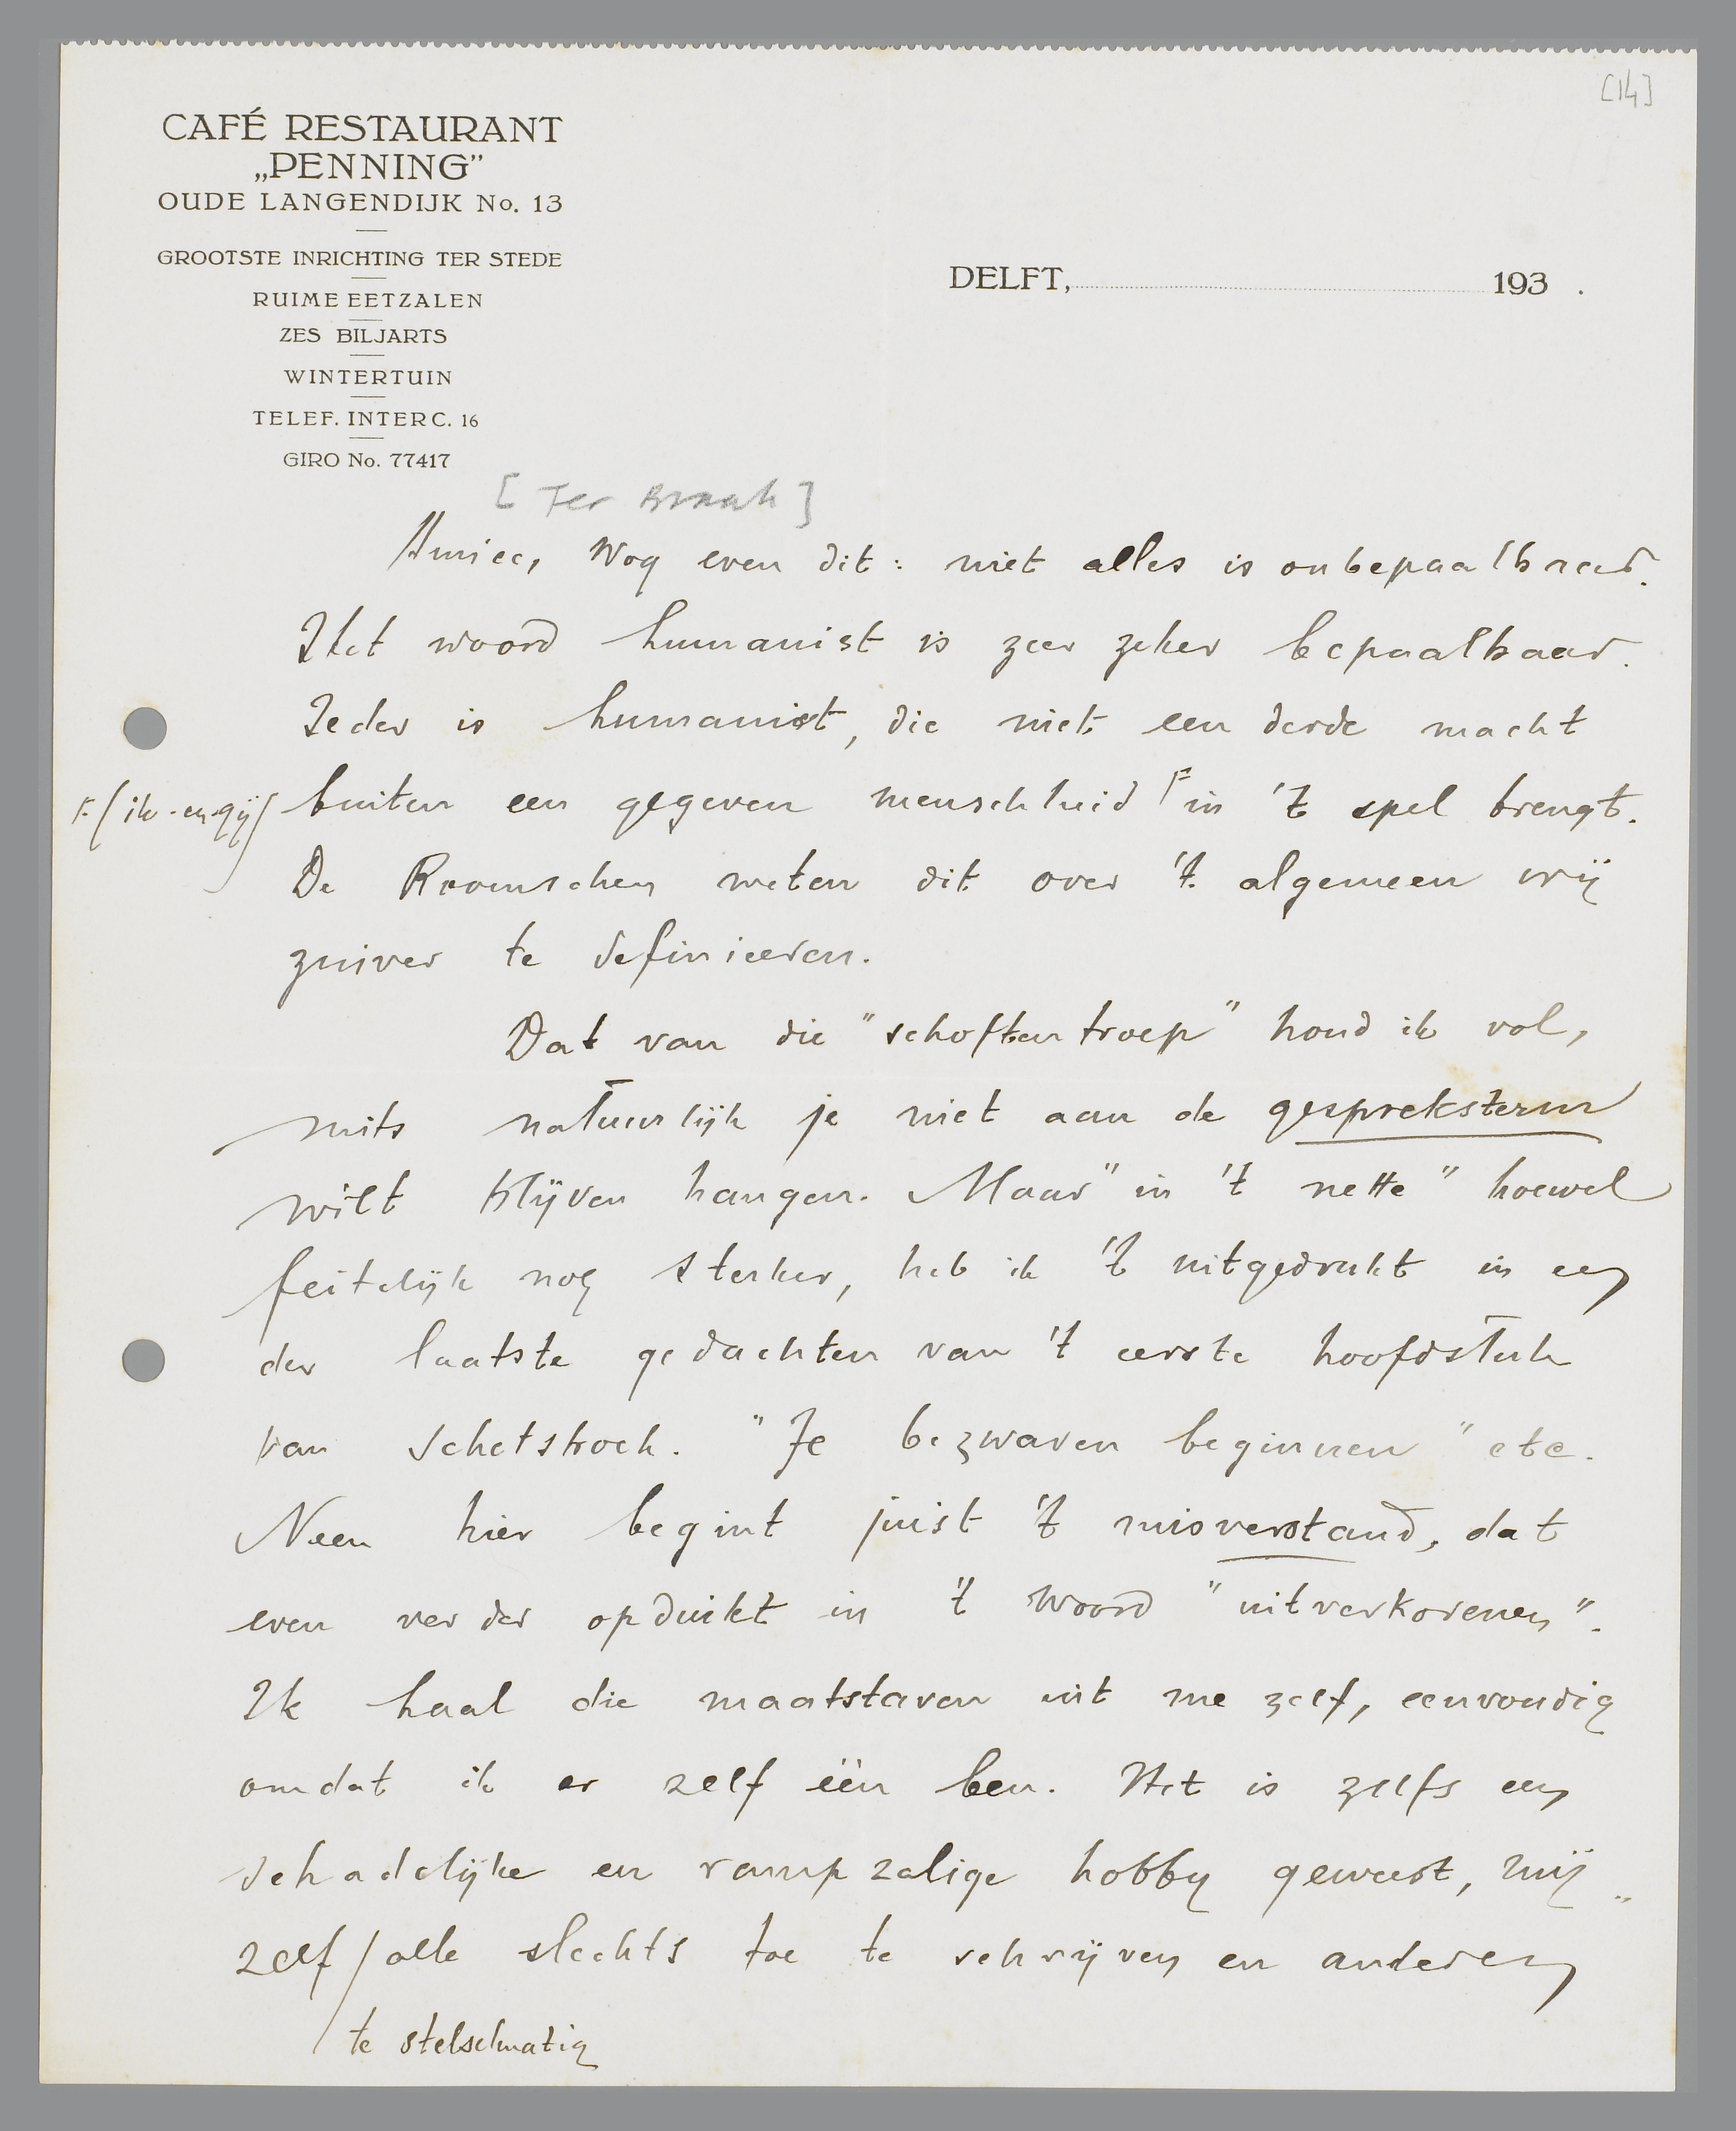 [14]
CAFÉ RESTAURANT
„PENNING”
OUDE LANGENDIJK No. 13
GROOTSTE INRICHTING TER STEDE
RUIME EETZALEN
ZES BILJARTS
WINTERTUIN
TELEF. INTERC. 16
GIRO No. 77417
DELFT, 193 .
[Ter Braak]
Amice, Nog even dit: niet alles is onbepaalbaar.
Het woord humanist is zeer zeker bepaalbaar.
Ieder is humanist, die niet een derde macht
buiten een gegeven menschheid in 't spel brengt.
(ik-en-gij)
De Roomschen weten dit over 't algemeen vrij
zuiver te definieeren.
Dat van die "schoftentroep" houd ik vol,
mits natuurlijk je niet aan de gespreksterm
wilt blijven hangen. Maar "in 't nette" hoewel
feitelijk nog sterker, heb ik 't uitgedrukt in een
der laatste gedachten van 't eerste hoofdstuk
van Schetsboek. "Je bezwaren beginnen" etc.
Neen hier begint juist 't misverstand, dat
even verder opduikt in 't woord "uitverkorenen".
Ik haal die maatstaven uit me zelf, eenvoudig
omdat ik er zelf één ben. Het is zelfs een
schadelijke en rampzalige hobby geweest, mij
zelf / alle slechts toe te schrijven en anderen
te stelselmatig